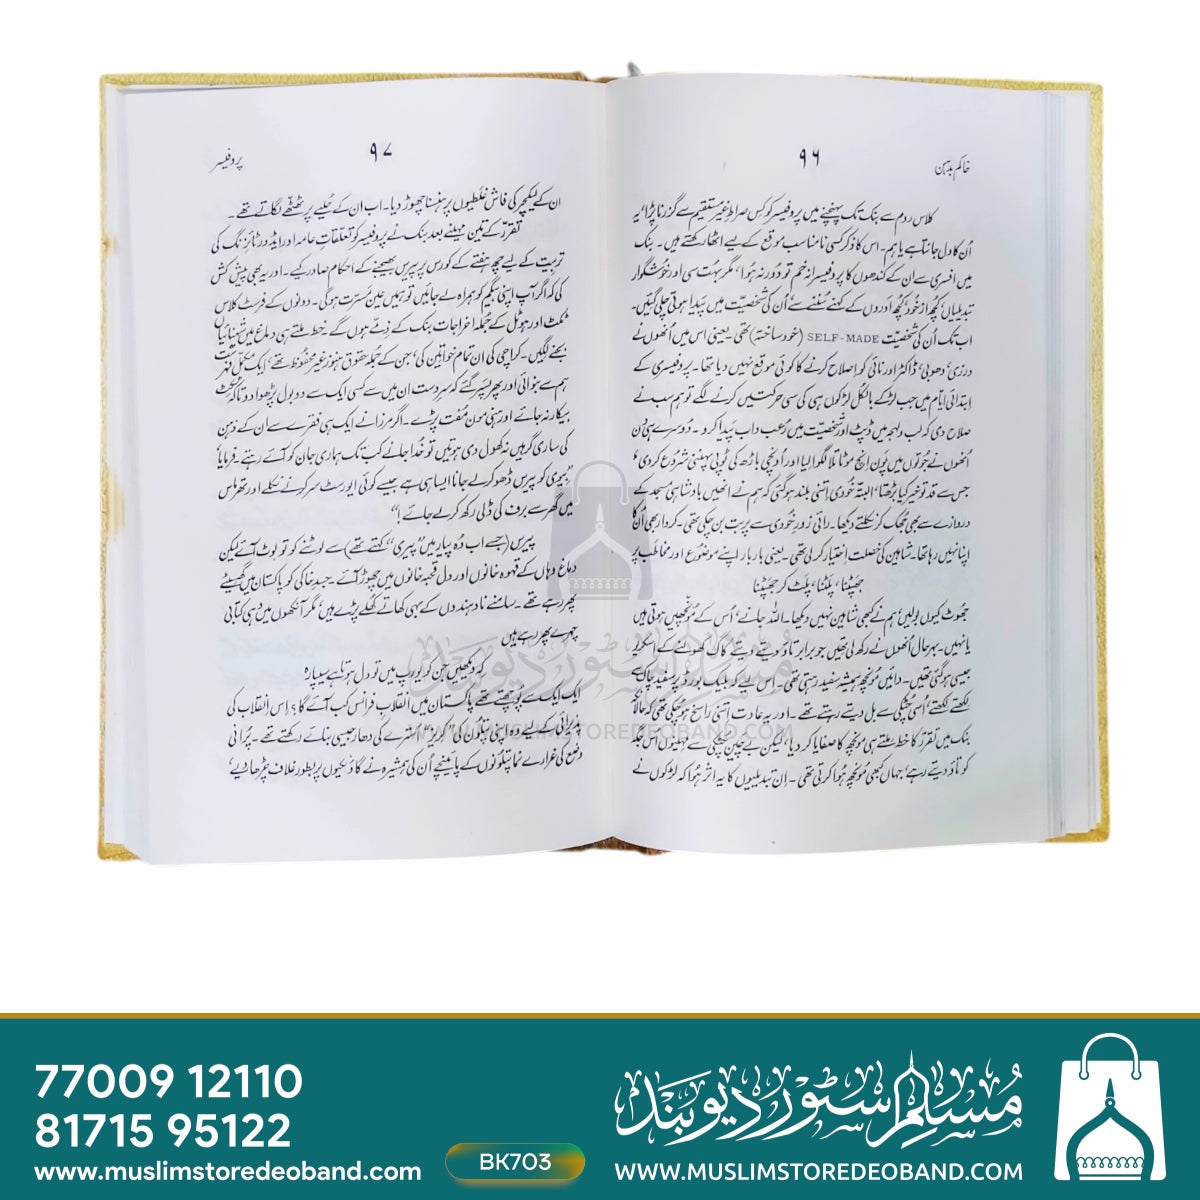 ۹۶
خاکم بدہن
کلاس روم سے بنک تک پہنچنے میں پروفیسر کو کس صراطِ غیر مستقیم سے گزرنا پڑا، یہ
اُن کا دل جانتا ہے یا ہم۔ اس کا ذکر کسی نامناسب موقع کے لیے اٹھا رکھتے ہیں۔ بنک
میں افسری سے ان کے کندھوں کا پروفیسرانہ خم تو دُور نہ ہُوا، مگر بہت سی اور خوشگوار
تبدیلیاں کچھ از خُود، کچھ اَوروں کے کہنے سُننے سے اُن کی شخصیت میں پیدا ہوتی چلی گئیں۔
اب تک اُن کی شخصیت SELF-MADE (خود ساختہ) تھی یعنی اس میں اُنھوں نے
درزی، دھوبی، ڈاکٹر اور نائی کو اِصلاح کرنے کا کوئی موقع نہیں دیا تھا۔ پروفیسری کے
ابتدائی ایّام میں جب لڑکے بالکل لڑکوں ہی کی سی حرکتیں کرنے لگے تو ہم سب نے
صلاح دی کہ لب و لہجہ میں ڈپٹ اور شخصیت میں رُعب داب پیدا کرو۔ دُوسرے ہی دن
اُنھوں نے جُوتوں میں پَون اِنچ موٹا تلا لگوا لیا اور اُونچی باڑھ کی ٹوپی پہننی شروع کر دی،
جس سے قد تو خیر کیا بڑھتا، البتّہ خُودی اِتنی بلند ہو گئی کہ ہم نے انھیں بادشاہی مسجد کے
دروازے سے بھی جھک کر نکلتے دیکھا۔ رائی زورِ خُودی سے پربت بن چکی تھی۔ کردار بھی اُن کا
اپنا نہیں رہا تھا۔ شاہین کی خصلت اِختیار کر لی تھی۔ یعنی بار بار اپنے موضُوع اور مخاطب پر
جھپٹنا، پلٹنا، پلٹ کر جھپٹنا
جھوٹ کیوں بولیں، ہم نے کبھی شاہین نہیں دیکھا۔ اللّٰہ جانے، اُس کے مونچھیں ہوتی ہیں
یا نہیں۔ بہر حال اُنھوں نے رکھ لی تھیں جو برابر تاؤ دیتے دیتے کاگ کھولنے کے اسکرو
جیسی ہو گئی تھیں۔ دائیں مونچھ ہمیشہ سفید رہتی تھی۔ اِس لیے کہ بلیک بورڈ پر سفید چاک سے
لکھتے لکھتے، اُسی چٹکی سے بل دیتے رہتے تھے۔ اور یہ عادت اِتنی راسخ ہو چکی تھی کہ حالانکہ
بنک میں تقرر کا خط ملتے ہی مونچھ کا صفایا کر دیا، لیکن بے چین چٹکی سے مہینوں اُس جگہ
کو تاؤ دیتے رہے، جہاں کبھی مُونچھ ہُوا کرتی تھی۔ اِن تبدیلیوں کا یہ اثر ہُوا کہ لڑکوں نے
۹۷
پروفیسر
ان کے لیکچر کی فاش غلطیوں پر ہنسنا چھوڑ دیا۔ اب ان کے حُلیے پر ٹھٹھے لگاتے تھے۔
تقرر کے تین مہینے بعد بنک نے پروفیسر کو تعلقاتِ عامہ اور ایڈورٹائزنگ کی
تربیت کے لیے چھ ہفتے کے کورس پر پیرس بھیجنے کے احکام صادر کیے۔ اور یہ بھی پیش کش
کی کہ اگر آپ اپنی بیگم کو ہمراہ لے جائیں تو ہمیں عین مسرت ہو گی۔ دونوں کے فرسٹ کلاس
ٹکٹ اور ہوٹل کے جملہ اخراجات بنک کے ذِمّے ہوں گے۔ خط ملتے ہی دماغ میں شہنائیاں
بجنے لگیں۔ کراچی کی اُن تمام خواتین کی، جن کے جملہ حقوق ہنوز غیر محفوظ تھے، ایک مکمل فہرست
ہم سے بنوائی اور پھر پسر گئے کہ سرِدست ان میں سے کسی ایک سے دو بول پڑھوا دو تاکہ ٹکٹ
بیکار نہ جائے اور ہنی مون مُفت پڑے۔ اگر مرزا نے ایک ہی فقرے سے ان کے ذہن
کی ساری گرہیں نہ کھول دی ہوتیں تو خُدا جانے کب تک ہماری جان کو آئے رہتے۔ فرمایا
"بیوی کو پیرس ڈھو کر لے جانا ایسا ہی ہے جیسے کوئی ایورسٹ سر کرنے نکلے اور تھرماس
میں گھر سے برف کی ڈلی رکھ کر لے جائے!"
پیرس (جسے اب وُہ پیار میں "پیری" کہتے تھے) سے لوٹنے کو تو لوٹ آئے لیکن
دماغ وہاں کے قہوہ خانوں اور دل قحبہ خانوں میں چھوڑ آئے۔ جسدِ خاکی کو پاکستان میں گھسیٹے
پھر رہے تھے۔ سامنے نادہندوں کے بہی کھاتے کھلے پڑے ہیں، مگر آنکھوں میں وہی کتابی
چہرے پھر رہے ہیں
کہ دیکھیں جن کو یورپ میں تو دل ہوتا ہے سیپارہ
ایک ایک سے پُوچھتے تھے پاکستان میں انقلابِ فرانس کب آئے گا؟ اِس اِنقلاب کی
پذیرائی کے لیے وہ اپنی پتلون کی "کریز" اُسترے کی دھار جیسی بنائے رکھتے تھے۔ پُرانی
وضع کی غرارے نما پتلونوں کے پائینچے اُن کی ہمشیرہ نے گاؤ تکیوں پر بطور غلاف چڑھا دیے،
WWW.MUSLIMSTOREDEOBAND.COM
مسلم سٹور دیوبند
77009 12110
81715 95122
www.muslimstoredeoband.com
BK703
مسلم سٹور دیوبند
WWW.MUSLIMSTOREDEOBAND.COM